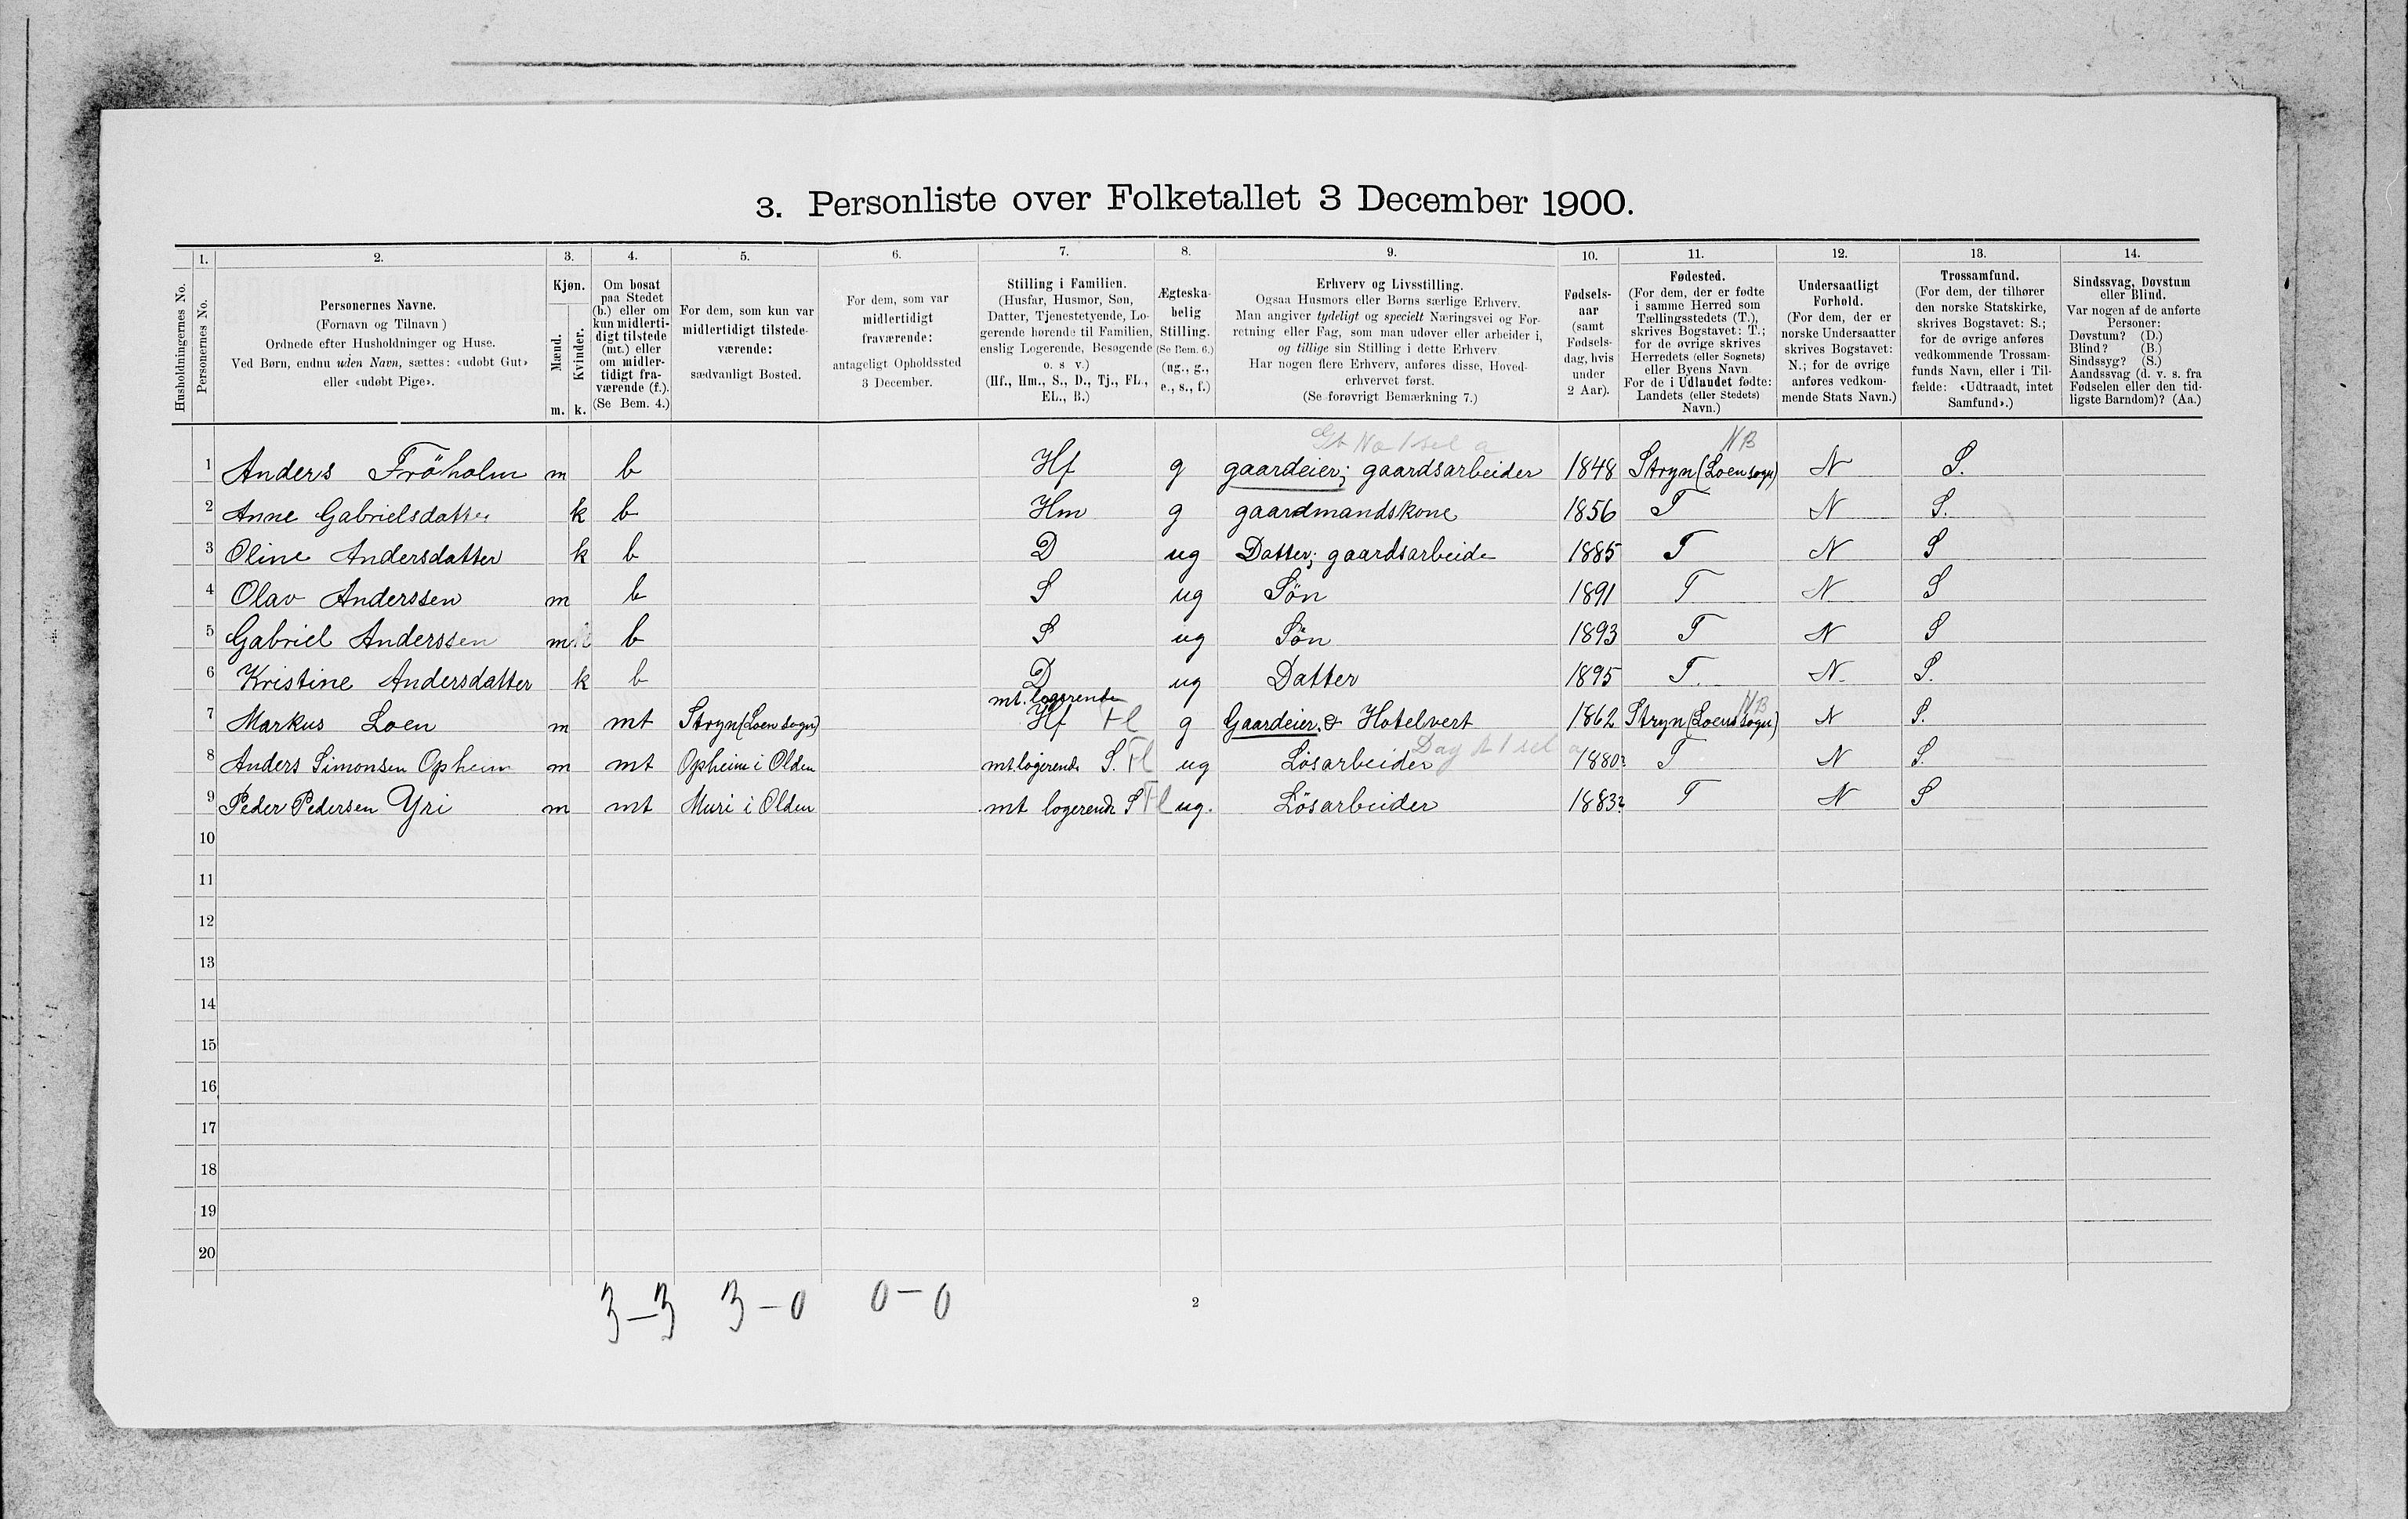 3. Personliste over Folketallet 3 December 1900.
1. 2. 3. 4. 5. 6. 7. 8. 9. 10. 11. 12. 13. 14.
Husholdningernes No.
Personernes No.
Personernes Navne.
(Fornavn og Tilnavn)
Ordnede efter Husholdninger og Huse.
Ved Børn, endnu uden Navn, sættes: «udøbt Gut»
eller «udøbt Pige».
Kjøn.
Mænd.
Kvinder.
m. k.
Om bosat
paa Stedet
(b.) eller om
kun midlerti-
digt tilstede
(mt.) eller
om midler-
tidigt fra-
værende (f.).
(Se Bem. 4.)
For dem, som kun var
midlertidigt tilstede-
værende:
sædvanligt Bosted.
For dem, som var
midlertidigt
fraværende:
antageligt Opholdssted
3 December.
Stilling i Familien.
(Husfar, Husmor, Søn,
Datter, Tjenestetyende, Lo-
gerende hørende til Familien,
enslig Logerende, Besøgende
o. s v.)
(Hf., Hm., S., D., Tj., FL.,
EL., B.)
Ægteska-
belig
Stilling.
(Se Bem. 6.)
(ug., g.,
e., s., f.)
Erhverv og Livsstilling.
Ogsaa Husmors eller Børns særlige Erhverv.
Man angiver tydeligt og specielt Næringsvei og For-
retning eller Fag, som man udøver eller arbeider i,
og tillige sin Stilling i dette Erhverv.
Har nogen flere Erhverv, anføres disse, Hoved-
erhvervet først.
(Se forøvrigt Bemærkning 7.)
Fødsels-
aar
(samt
Fødsels-
dag, hvis
under
2 Aar).
Fødested.
(For dem, der er fødte
i samme Herred som
Tællingsstedets (T.),
skrives Bogstavet: T.;
for de øvrige skrives
Herredets (eller Sognets)
eller Byens Navn.
For de i Udlandet fødte:
Landets (eller Stedets)
Navn.)
Undersaatligt
Forhold.
(For dem, der er
norske Undersaatter
skrives Bogstavet:
N.; for de øvrige
anføres vedkom-
mende Stats Navn.)
Trossamfund.
(For dem, der tilhører
den norske Statskirke,
skrives Bogstavet: S.;
for de øvrige anføres
vedkommende Trossam-
funds Navn, eller i Til-
fælde: «Udtraadt, intet
Samfund».)
Sindssvag, Døvstum
eller Blind.
Var nogen af de anførte
Personer:
Døvstum? (D.)
Blind? (B.)
Sindssyg? (S.)
Aandssvag (d. v. s. fra
Fødselen eller den tid-
ligste Barndom)? (Aa.)
NB
1 Anders Fröholm m b Hf g gaardeier; gaardsarbeider 1848 Stryn (Loen sogn) N S.
2 Anne Gabrielsdatter k b Hm g gaardmandskone 1856 T N S.
3 Oline Andersdatter k b D ug Datter; gaardsarbeide 1885 T N S
4 Olav Anderssen m b S ug Søn 1891 T N S
5 Gabriel Anderssen m b S ug Søn 1893 T N S
6 Kristine Andersdatter k b D ug Datter 1895 T. N. S.
mt. logerende NB
7 Markus Loen m mt Stryn (Loen sogn) Hf Fl g Gaardeier & Hotelvert 1862 Stryn (Loens sogn) N S.
8 Anders Simonsen Opheim m mt Opheim i Olden mt logerende S. Fl ug Løsarbeider 1880? T N S.
9 Peder Pedersen Yri m mt Muri i Olden mt logerende S Fl ug. Løsarbeider 1883? T N S
10
11
12
13
14
15
16
17
18
19
20
3–3 3–0 0–0
2